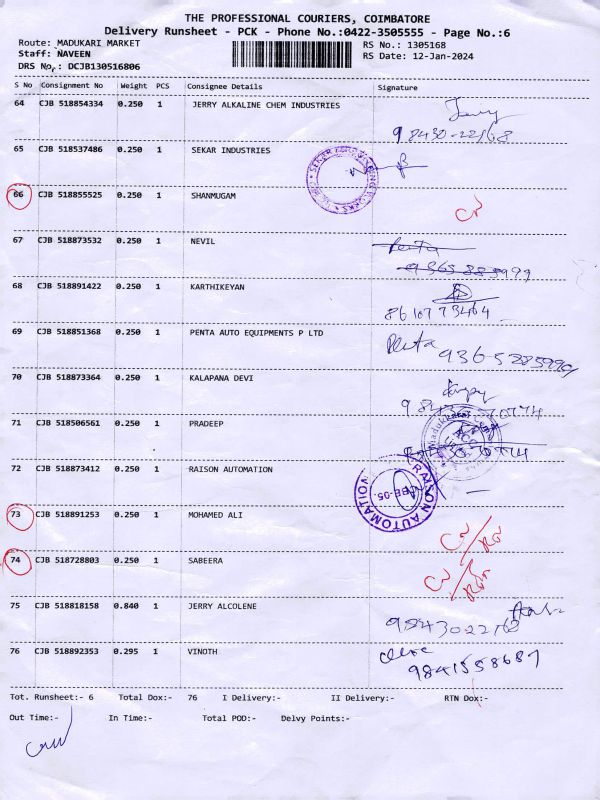 THE PROFESSIONAL COURIERS, COIMBATORE
Delivery Runsheet - PCK - Phone No.:0422-3505555 - Page No.:6
Route: MADUKARI MARKET
RS No.: 1305168
Staff: NAVEEN
RS Date: 12-Jan-2024
DRS No.: DCJB130516806
S No Consignment No Weight PCS Consignee Details Signature
64 CJB 518854334 0.250 1 JERRY ALKALINE CHEM INDUSTRIES Jerry
98430-22168
65 CJB 518537486 0.250 1 SEKAR INDUSTRIES
66 CJB 518855525 0.250 1 SHANMUGAM
67 CJB 518873532 0.250 1 NEVIL Penta
68 CJB 518891422 0.250 1 KARTHIKEYAN
8610773464
69 CJB 518851368 0.250 1 PENTA AUTO EQUIPMENTS P LTD Penta
70 CJB 518873364 0.250 1 KALAPANA DEVI
71 CJB 518506561 0.250 1 PRADEEP
72 CJB 518873412 0.250 1 RAISON AUTOMATION
RAISON AUTOMATION
73 CJB 518891253 0.250 1 MOHAMED ALI
74 CJB 518728803 0.250 1 SABEERA
75 CJB 518818158 0.840 1 JERRY ALCOLENE
9843022168
76 CJB 518892353 0.295 1 VINOTH
9841558687
Tot. Runsheet:- 6 Total Dox:- 76 I Delivery:- II Delivery:- RTN Dox:-
Out Time:- In Time:- Total POD:- Delvy Points:-